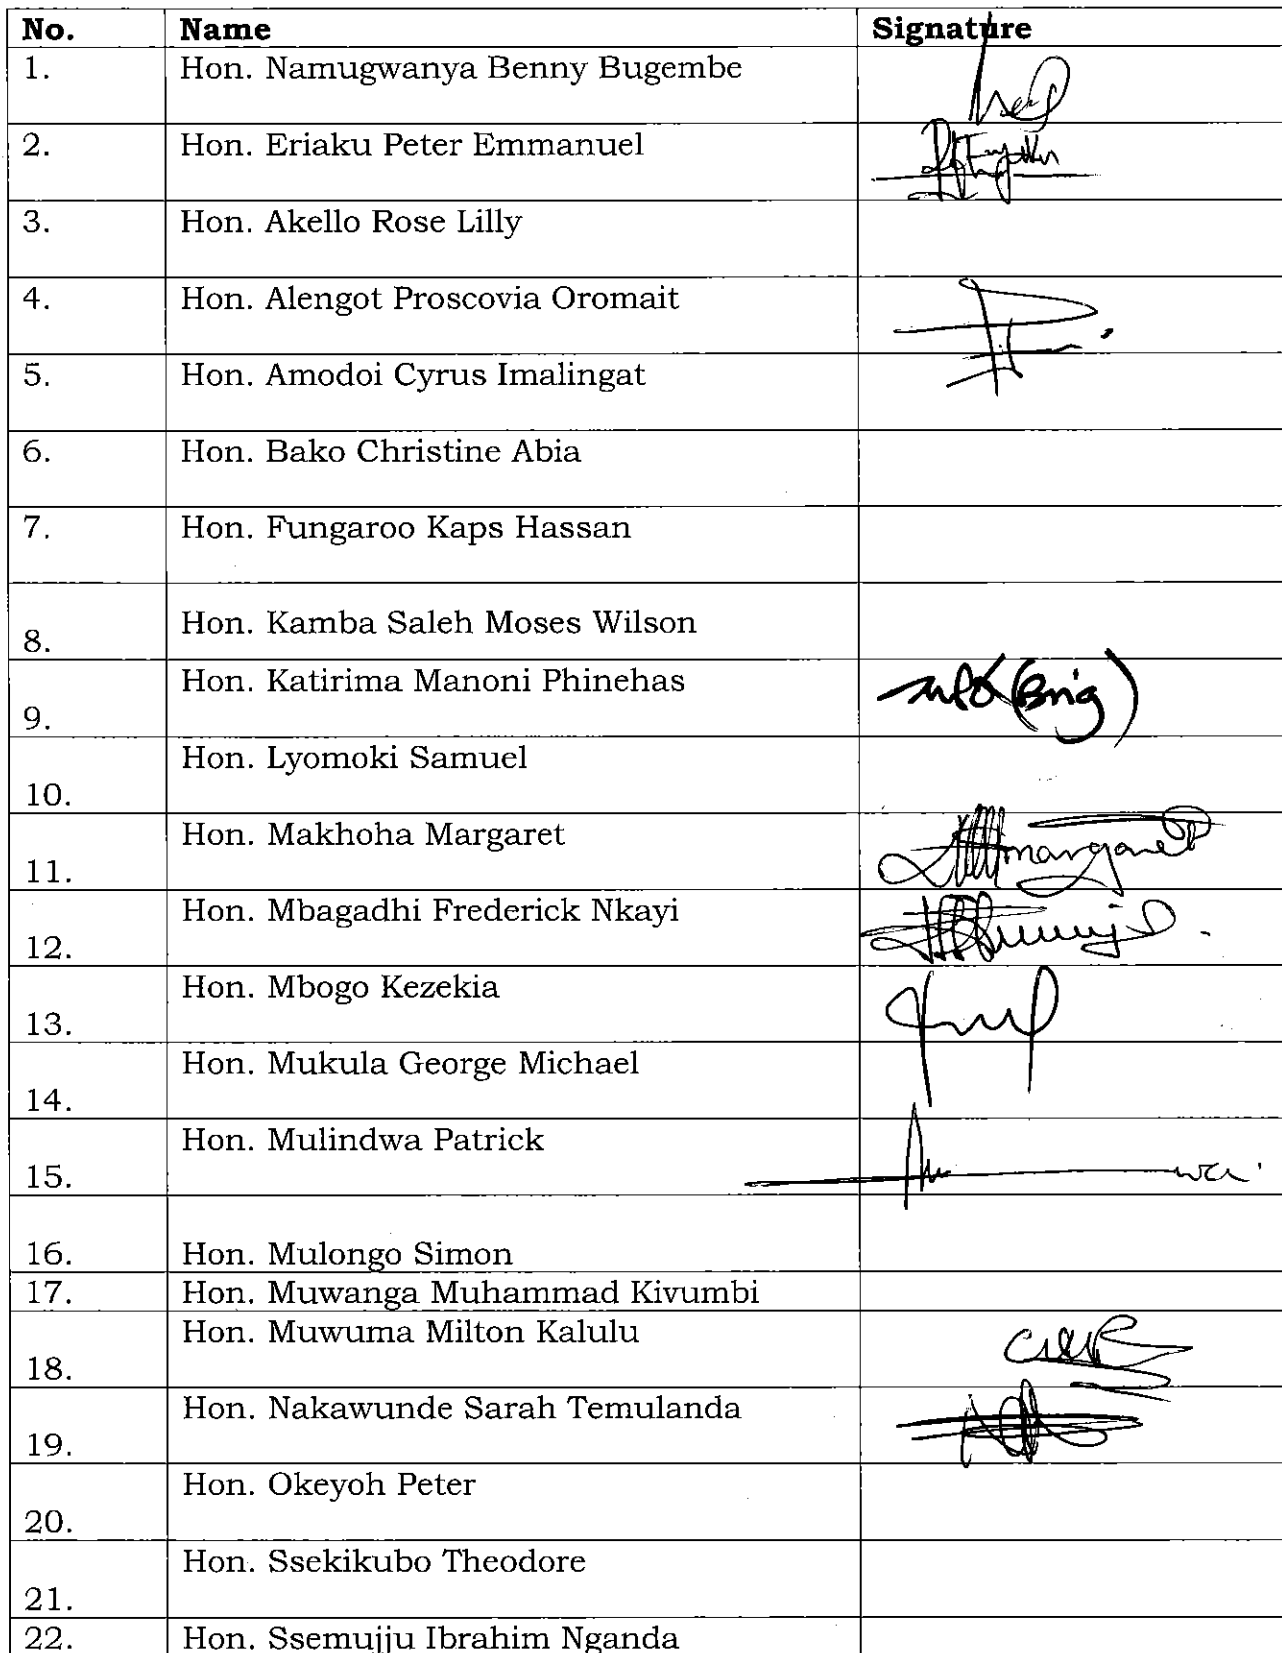 No. Name Signature
1. Hon. Namugwanya Benny Bugembe
2. Hon. Eriaku Peter Emmanuel
3. Hon. Akello Rose Lilly
4. Hon. Alengot Proscovia Oromait
5. Hon. Amodoi Cyrus Imalingat
6. Hon. Bako Christine Abia
7. Hon. Fungaroo Kaps Hassan
8. Hon. Kamba Saleh Moses Wilson
9. Hon. Katirima Manoni Phinehas (Brig)
10. Hon. Lyomoki Samuel
11. Hon. Makhoha Margaret margaret
12. Hon. Mbagadhi Frederick Nkayi
13. Hon. Mbogo Kezekia
14. Hon. Mukula George Michael
15. Hon. Mulindwa Patrick
16. Hon. Mulongo Simon
17. Hon. Muwanga Muhammad Kivumbi
18. Hon. Muwuma Milton Kalulu
19. Hon. Nakawunde Sarah Temulanda
20. Hon. Okeyoh Peter
21. Hon. Ssekikubo Theodore
22. Hon. Ssemujju Ibrahim Nganda